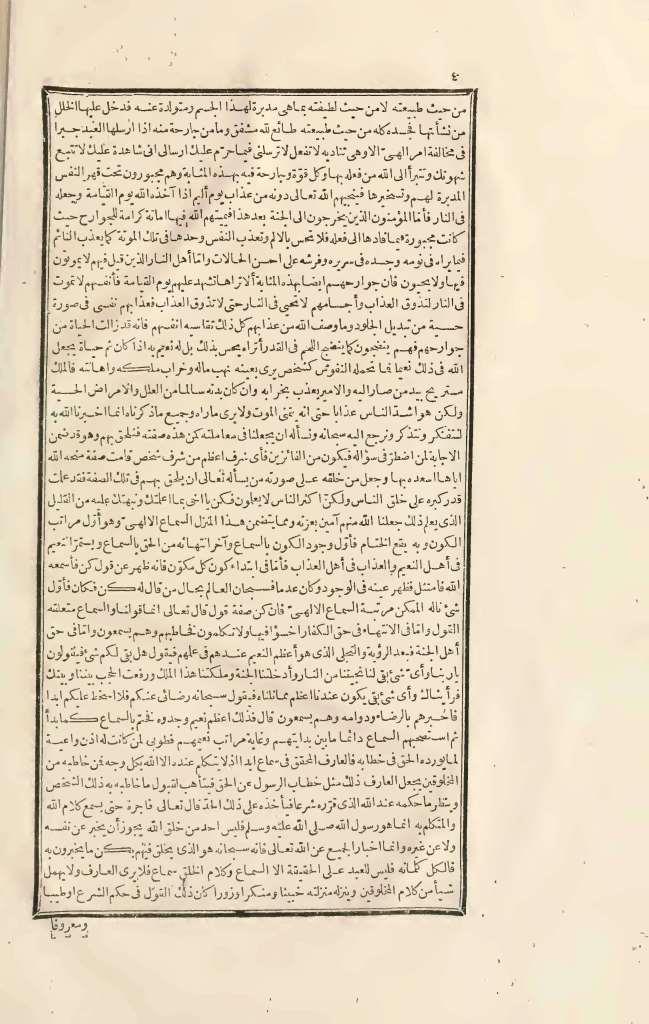 ٤
من حيث طبيعته لا من حيث لطيفته بما هى مدبرة لهذا الجسم ومتولدة عنه فدخل عليها الخلل
من نشأتها فجسده كله من حيث طبيعته طائع لله مشفق وما من جارحة منه اذا ارسلها العبد جبرا
فى مخالفة امر الهىّ الا وهى تناديه لا تفعل لا ترسلنى فيما حرّم عليك ارسالى انى شاهدة عليك لا تتبع
شهوتك وتتبرأ الى الله من فعله بها وكل قوّة وجارحة فيه بهذه المثابة وهم مجبورون تحت قهر النفس
المدبرة لهم وتسخيرها فينجيهم الله تعالى دونه من عذاب يوم أليم اذا آخذه الله يوم القيامة وجعله
فى النار فأمّا المؤمنون الذين يخرجون الى الجنة بعد هذا فيميتهم الله فيها اماتة كرامة للجوارح حيث
كانت مجبورة فيما قادها الى فعله فلا تحس بالالم وتعذب النفس وحدها فى تلك الموتة كما يعذب النائم
فيما يراه فى نومه وجسده فى سريره وفرشه على احسن الحالات وامّا أهل النار الذين قيل فيهم لا يموتون
فيها ولا يحيون فان جوارحهم ايضا بهذه المثابة ألا تراها تشهد عليهم يوم القيامة فأنفسهم لا تموت
فى النار لتذوق العذاب وأجسامهم لا تحيى فى النار حتى لا تذوق العذاب فعذابهم نفسى فى صورة
حسية من تبديل الجلود وما وصف الله من عذابهم كل ذلك تقاسيه انفسهم فانه قد زالت الحياة من
جوارحهم فهم ينضجون كما ينضج اللحم فى القدر أتراه يحس بذلك بل له نعيم به اذا كان ثم حياة يجعل
الله فى ذلك نعيما فما تحمله النفوس كشخص يرى بعينه نهب ماله وخراب ملكه واهانته فالملك
مستريح بيد من صار اليه والامير يعذب بخرابه وان كان بدنه سالما من العلل والامراض الحسية
ولكن هو اشدّ الناس عذابا حتى انه يتمنى الموت ولا يرى ما رآه وجميع ما ذكرناه انما اخبرنا الله به
لنتفكر ونتذكر ونرجع اليه سبحانه ونسأله ان يجعلنا فى معاملته كمن هذه صفته فنلحق بهم وهو قد ضمن
الاجابة لمن اضطرّ فى سؤاله فيكون من الفائزين فأى شرف اعظم من شرف شخص قامت صفة منحه الله
اياها اسعده بها وجعل من خلقه على صورته من يسأله تعالى ان يلحق بهم فى تلك الصفة فقد علمت
قدر كبره على خلق الناس ولكنّ اكثر الناس لا يعلمون فكن يا اخى بما اعلمتك ونبهتك عليه من القليل
الذى يعلم ذلك جعلنا الله منهم آمين بعزته ومما يتضمن هذا المنزل السماع الالهى وهو أوّل مراتب
الكون وبه يقع الختام فأوّل وجود الكون بالسماع وآخر انتهائه من الحق بالسماع ويستمرّ النعيم
فى أهل النعيم والعذاب فى أهل العذاب فأمّا فى ابتداء كون كل مكوّن فانه ظهر عن قول كن فأسمعه
الله فامتثل فظهر عينه فى الوجود وكان عدما فسبحان العالم بحال من قال له كن فكان فأوّل
شئ ناله الممكن مرتبة السماع الالهىّ فان كن صفة قول قال تعالى انما قولنا والسماع متعلقته
القول وامّا فى الانتهاء فى حق الكفار اخسؤا فيها ولا تكلمون فخاطبهم وهم يسمعون وامّا فى حق
أهل الجنة فبعد الرؤية والتجلى الذى هو أعظم النعيم عندهم فى علمهم فيقول هل بقى لكم شئ فيقولون
يا ربنا وأىّ شئ بقى لنا نجيتنا من النار وأدخلتنا الجنة وملكتنا هذا الملك ورفعت الحجب بيننا وبينك
فرأيناك وأى شئ بقى يكون عندنا اعظم مما نلناه فيقول سبحانه رضائى عنكم فلا اسخط عليكم ابدا
فاخبرهم بالرضاء ودوامه وهم يسمعون قال فذلك اعظم نعيم وجدوه فختم بالسماع كما بدأ
ثم استصحبهم السماع دائما ما بين بدايتهم وغاية مراتب نعيمهم فطوبى لمن كانت له اذن واعية
لما يورده الحق فى خطابه فالعارف المحقق فى سماع ابدا اذ لا يتكلم عنده الا الله بكل وجه فمن خاطبه من
المخلوقين يجعل العارف ذلك مثل خطاب الرسول عن الحق فيتأهب لقبول ما خاطبه به ذلك الشخص
وينظر ما حكمه عند الله الذى قرّره شرعا فيأخذه على ذلك الحدّ قال تعالى فاجره حتى يسمع كلام الله
والمتكلم به انما هو رسول الله صلى الله عليه وسلم فليس احد من خلق الله يجوز أن يخبر عن نفسه
ولا عن غيره وانما اخبار الجميع عن الله تعالى فانه سبحانه هو الذى يخلق فيهم بكن ما يخبرون به
فالكل كلماته فليس للعبد على الحقيقة الا السماع وكلام الخلق سماع فلا يرى العارف ولا يهمل
شيأ من كلام المخلوقين وينزله منزلته خبيثا ومنكرا وزورا كان ذلك القول فى حكم الشرع او طيبا
ومعروفا